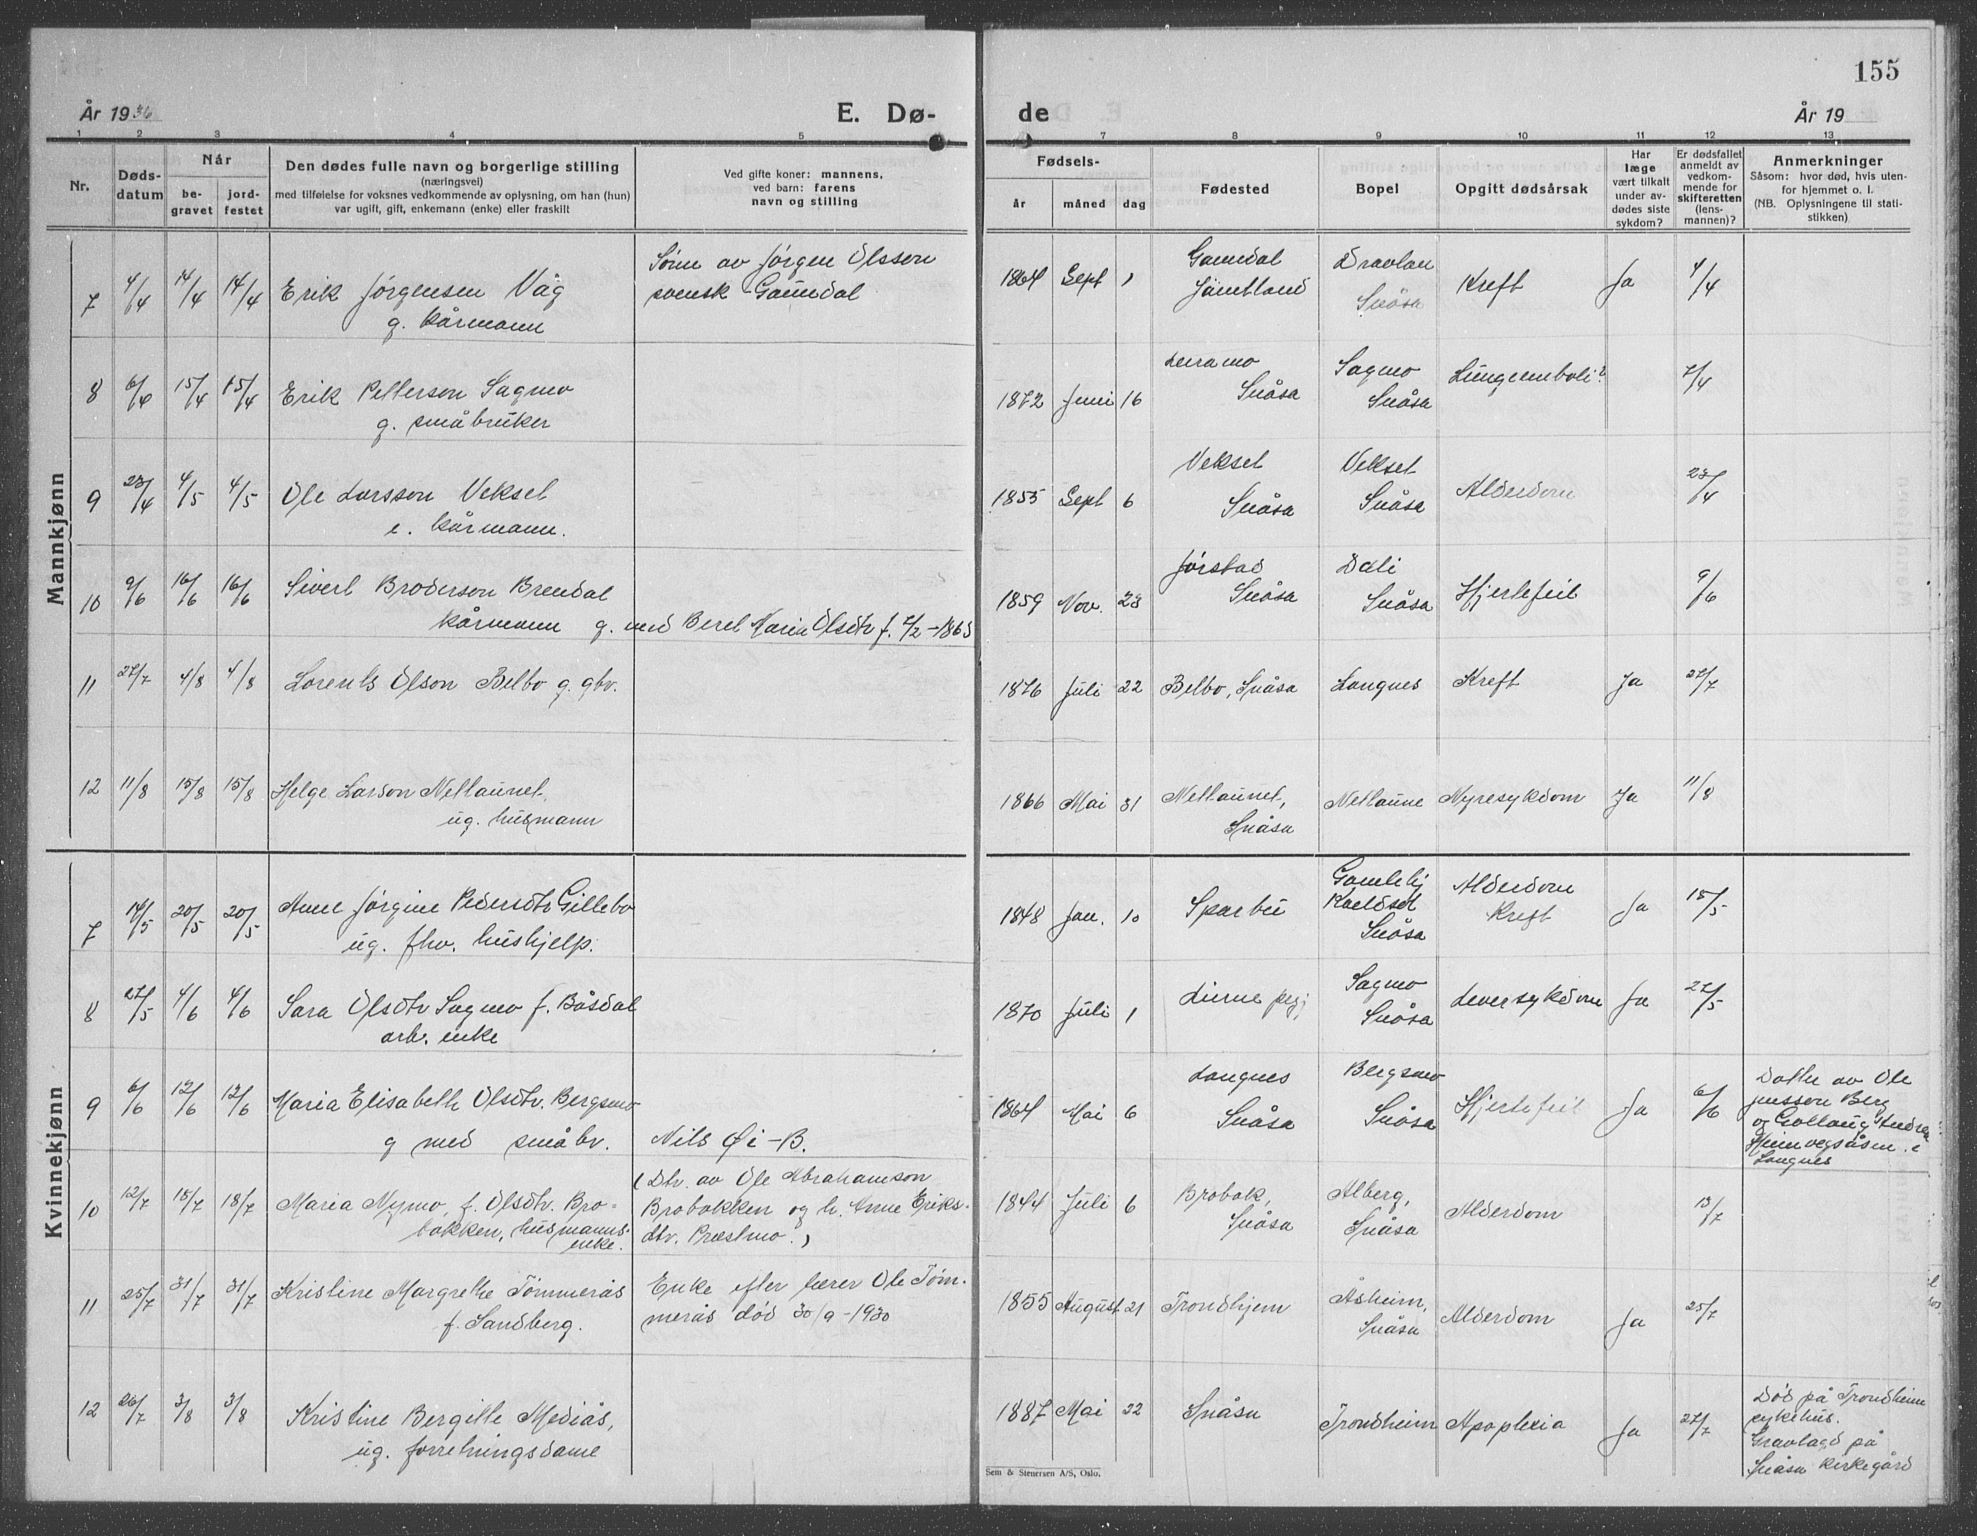 155
År 1936
E. Dø-
de
År 19
1 2 3 4 5 7 8 9 10 11 12 13
Nr.
Dødsdatum
Når
begravet
jordfestet
Den dødes fulle navn og borgerlige stilling
(næringsvei)
med tilføielse for voksnes vedkommende av oplysning, om han (hun)
var ugift, gift, enkemann (enke) eller fraskilt
Ved gifte koner: mannens,
ved barn: farens
navn og stilling
Fødsels-
år måned dag
Fødested
Bopel
Opgitt dødsårsak
Har
læge
vært tilkalt
under av-
dødes siste
sykdom?
Er dødsfallet
anmeldt av
vedkom-
mende for
skifteretten
(lens-
mannen)?
Anmerkninger
Såsom: hvor død, hvis uten-
for hjemmet o. l.
(NB. Oplysningene til stati-
stikken)
Mannkjønn
7 4/4 14/4 14/4 Erik Jørgensen Våg
g. kårmann
Sønn av Jørgen Olsson
svensk-Gaundal
1864 Sept 1 Gaundal
Jämtland
Dravlan
Snåsa
Kreft Ja 4/4
8 6/4 15/4 15/4 Erik Petterson Sagmo
g. småbruker
1872 Juni 16
Snåsa
Sagmo
Snåsa
Lungeemboli? 7/4
9 23/4 4/5 4/5 Ole Larsson Veksel
e. kårmann.
1855 Sept 6 Veksel
Snåsa
Veksel
Snåsa
Alderdom 23/4
10 9/6 16/6 16/6 Sivert Broderson Brendal
kårmann g. med Beret Maria Olsdtr f.
1859 Nov. 23 Jørstad
Snåsa
Dali
Snåsa
Hjertefeil 9/6
11 27/7 4/8 4/8 Lorents Olson Belbo g. gbr.
1876 Juli 22 Belbo, Snåsa Langnes Kreft Ja 27/7
12 11/8 15/8 15/8 Helge Larson Netlaunet
ug. husmann
1866 Mai 31 Netlaunet,
Snåsa
Netlaune Nyresykdom Ja 11/8
Kvinnekjønn
7 14/5 20/5 20/5 Anne Jørgine Pedersdtr Gillebo
ug. fhv. hushjelp.
1848 Jan. 10 Sparbu
Gamlehj
Snåsa
Alderdom
Kreft
Ja 15/5
8 27/5 4/6 4/6 Sara Olsdtr Sagmo f. Båsdal
arb. enke
1870 Juli 1 Lierne pgj,
Sagmo
Snåsa
Leversykdom Ja 27/5
9 6/6 12/6 12/6 Maria Elisabeth Olsdtr. Bergsmo
g med småbr. Nils Øi-B.
1864 Mai 6 Langnes
Snåsa
Bergsmo
Snåsa
Hjertefeil Ja 6/6
Datter av Ole
Jensson Berg
og
Heimvegsåsen i
Langnes
10 12/7 18/7 18/7 Maria Nymo, f. Olsdtr. Bro-
bakken, husmanns-
enke.
(Dtr. av Ole Abrahamson
Brobakken og h. Anne Eriks-
dtr. Præstmo.)
1844 Juli 6 Brobak,
Snåsa
Alberg,
Snåsa
Alderdom 13/7
11 25/7 31/7 31/7 Kristine Margrethe Tømmerås
f. Sandberg.
Enke efter lærer Ole Tøm-
merås død 30/9-1930
1855 August 21 Trondhjem
Åsheim,
Snåsa
Alderdom Ja 25/7
12 26/7 3/8 3/8 Kristine Bergitte Mediås,
ug. forretningsdame
1887 Mai 22 Snåsa Trondheim Apoplexia Ja 27/7
Død på Trondheim
sykehus.
Gravlagd på
Snåsa kirkegård
Sem & Stenersen A/S, Oslo.